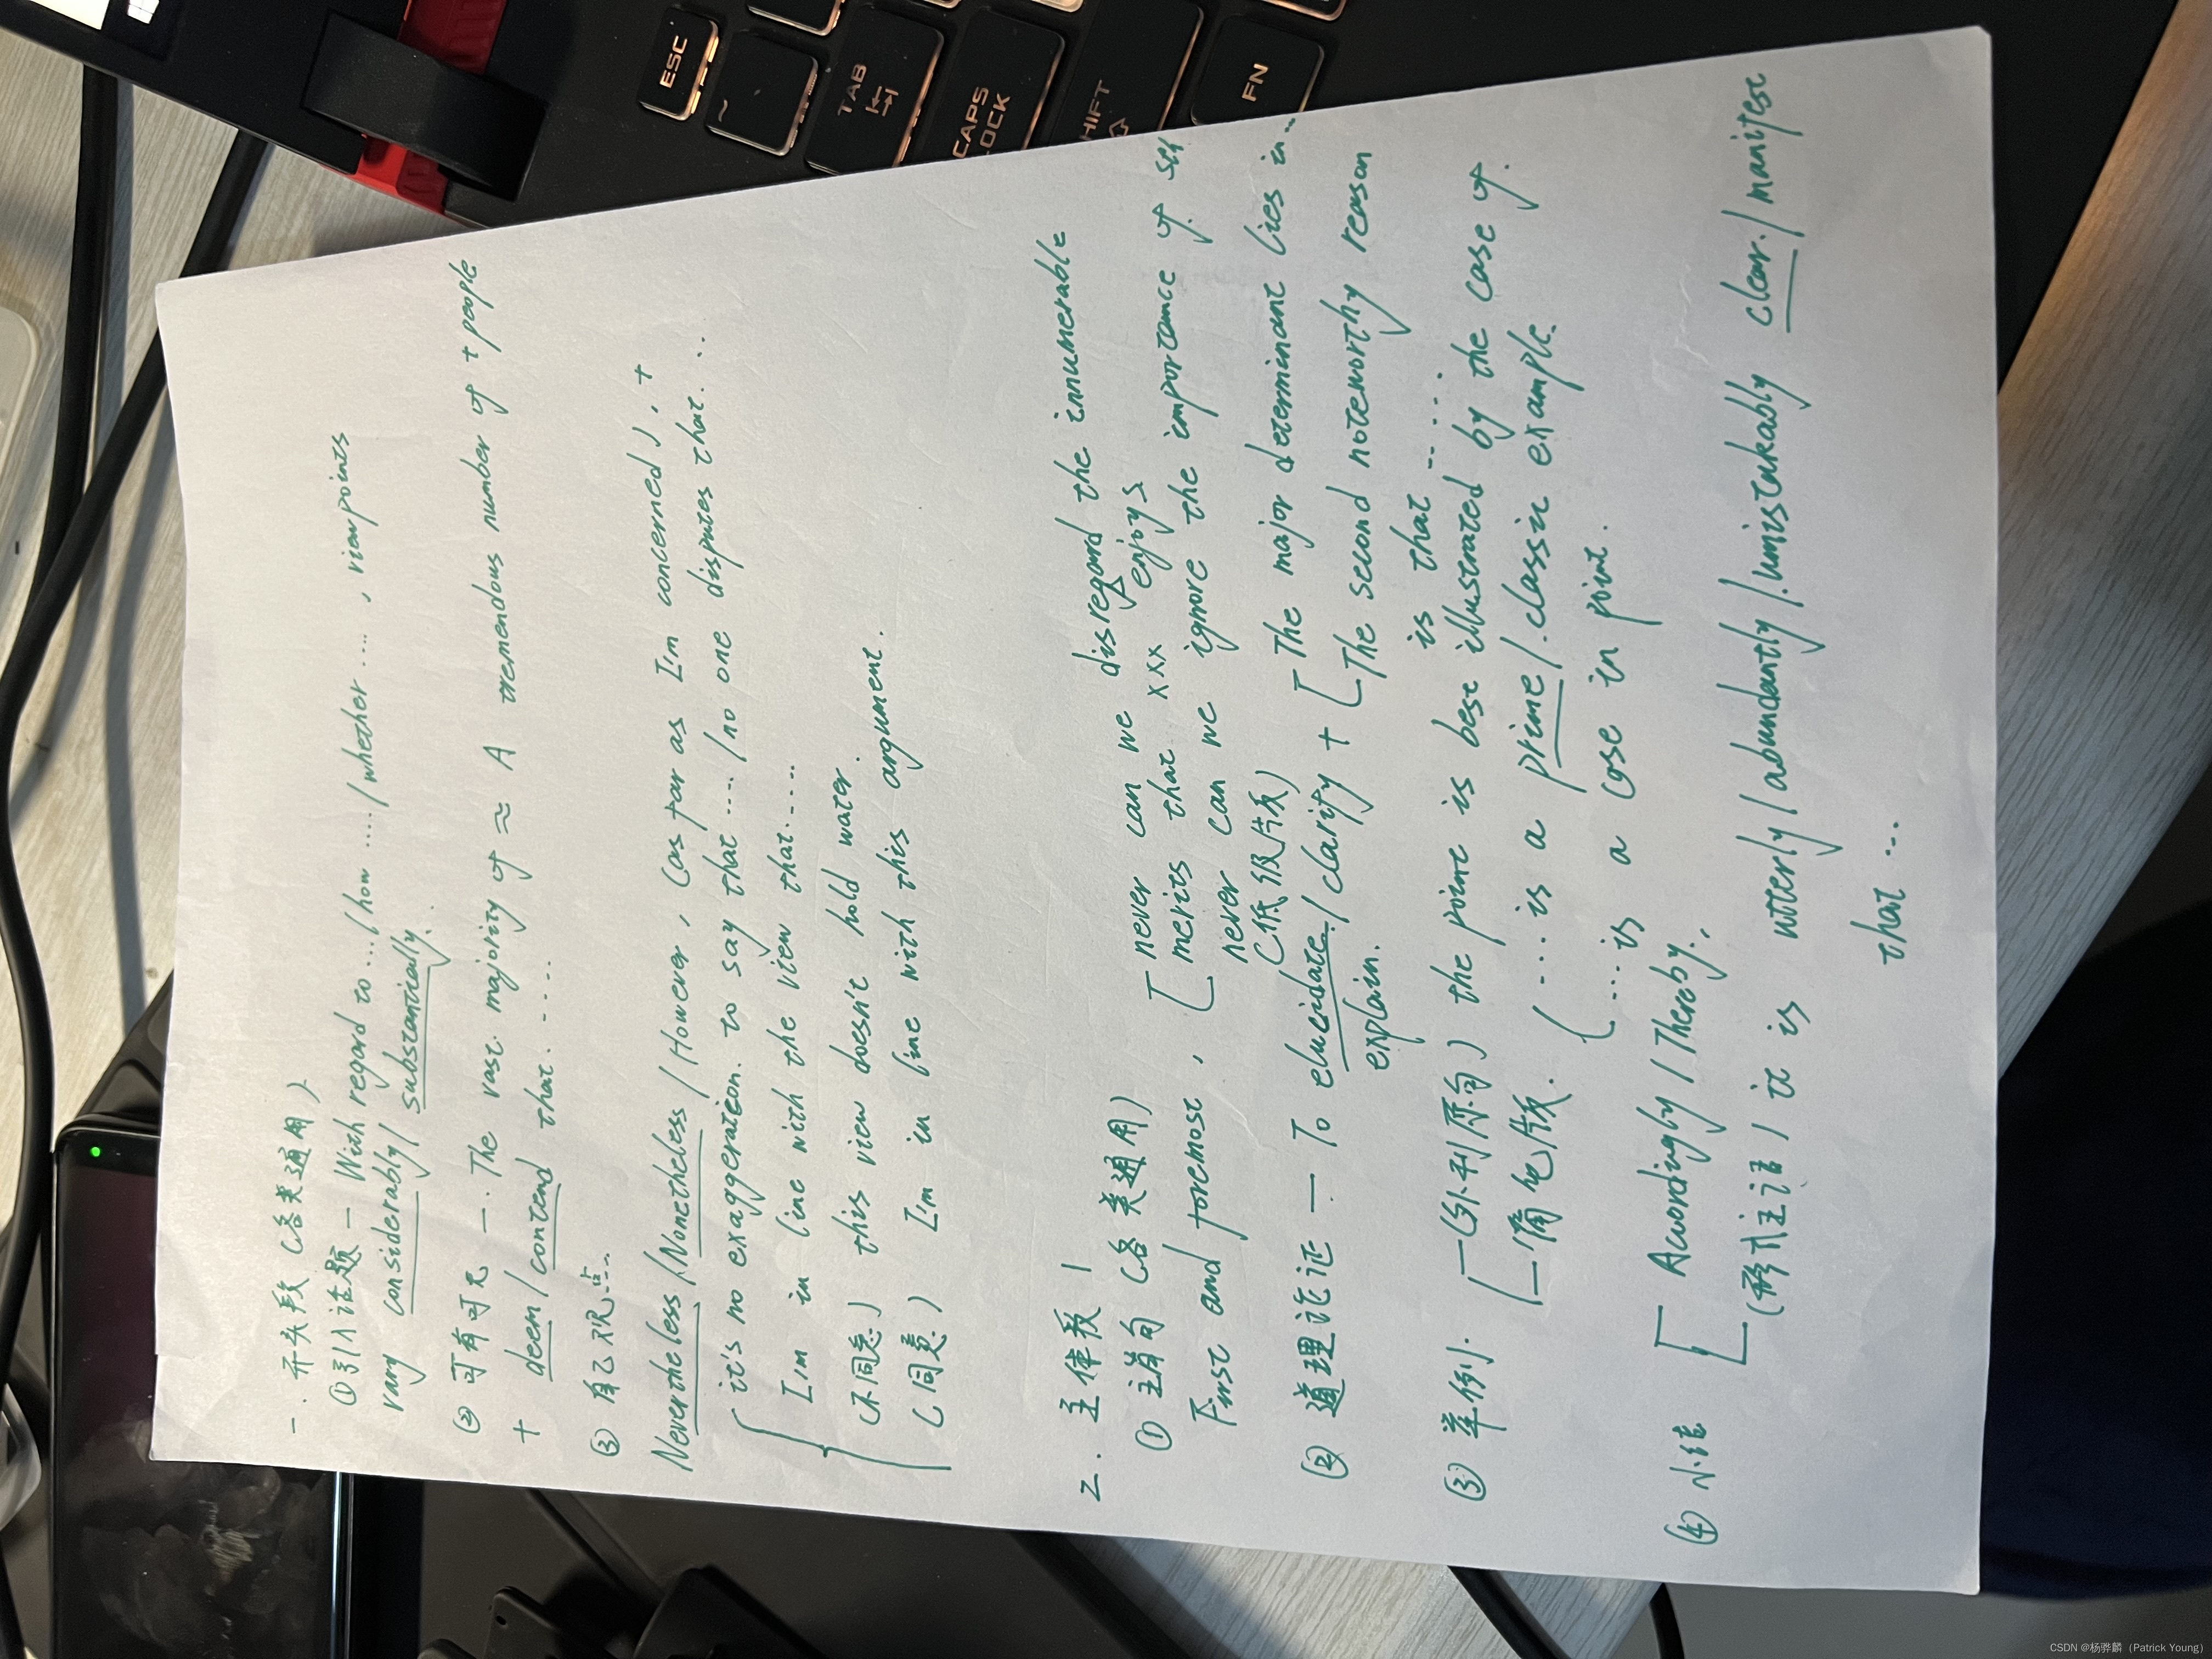 一. 开头段 (各类通用)
①引入话题 — With regard to .../how ..../whether ...., viewpoints
vary considerably/ substantically.
② 可有可无 —. The vast majority of ≈ A tremendous number of + people
+ deem / contend that.......
③ 自己观点...
Nevertheless /Nonetheless / However, (as far as I'm concerned), +
it's no exaggeration. to say that ..../ no one disputes that...
I'm in line with the view that.....
(不同意) this view doesn't hold water.
(同意) I'm in line with this argument.
2. 主体段 1
① 主旨句 (各类通用)
First and foremost, never can we disregard the innumerable
merits that xxx enjoys
never can we ignore the importance of sth
(低级片版)
② 道理论证 — To elucidate / clarify + The major determinant lies in...
explain. The second noteworthy reason
is that ......
③ 举例. (外刊原句) the point is best illustrated by the case of.
简化版. .... is a prime / classic example.
....is a case in point.
④ 小结 Accordingly / Thereby,
(形式主语) it is utterly / abundantly / unmistakably clear / manifest
that ...
ESC
~
TAB
CAPS LOCK
SHIFT
FN
CSDN @杨骅麟 (Patrick Young)